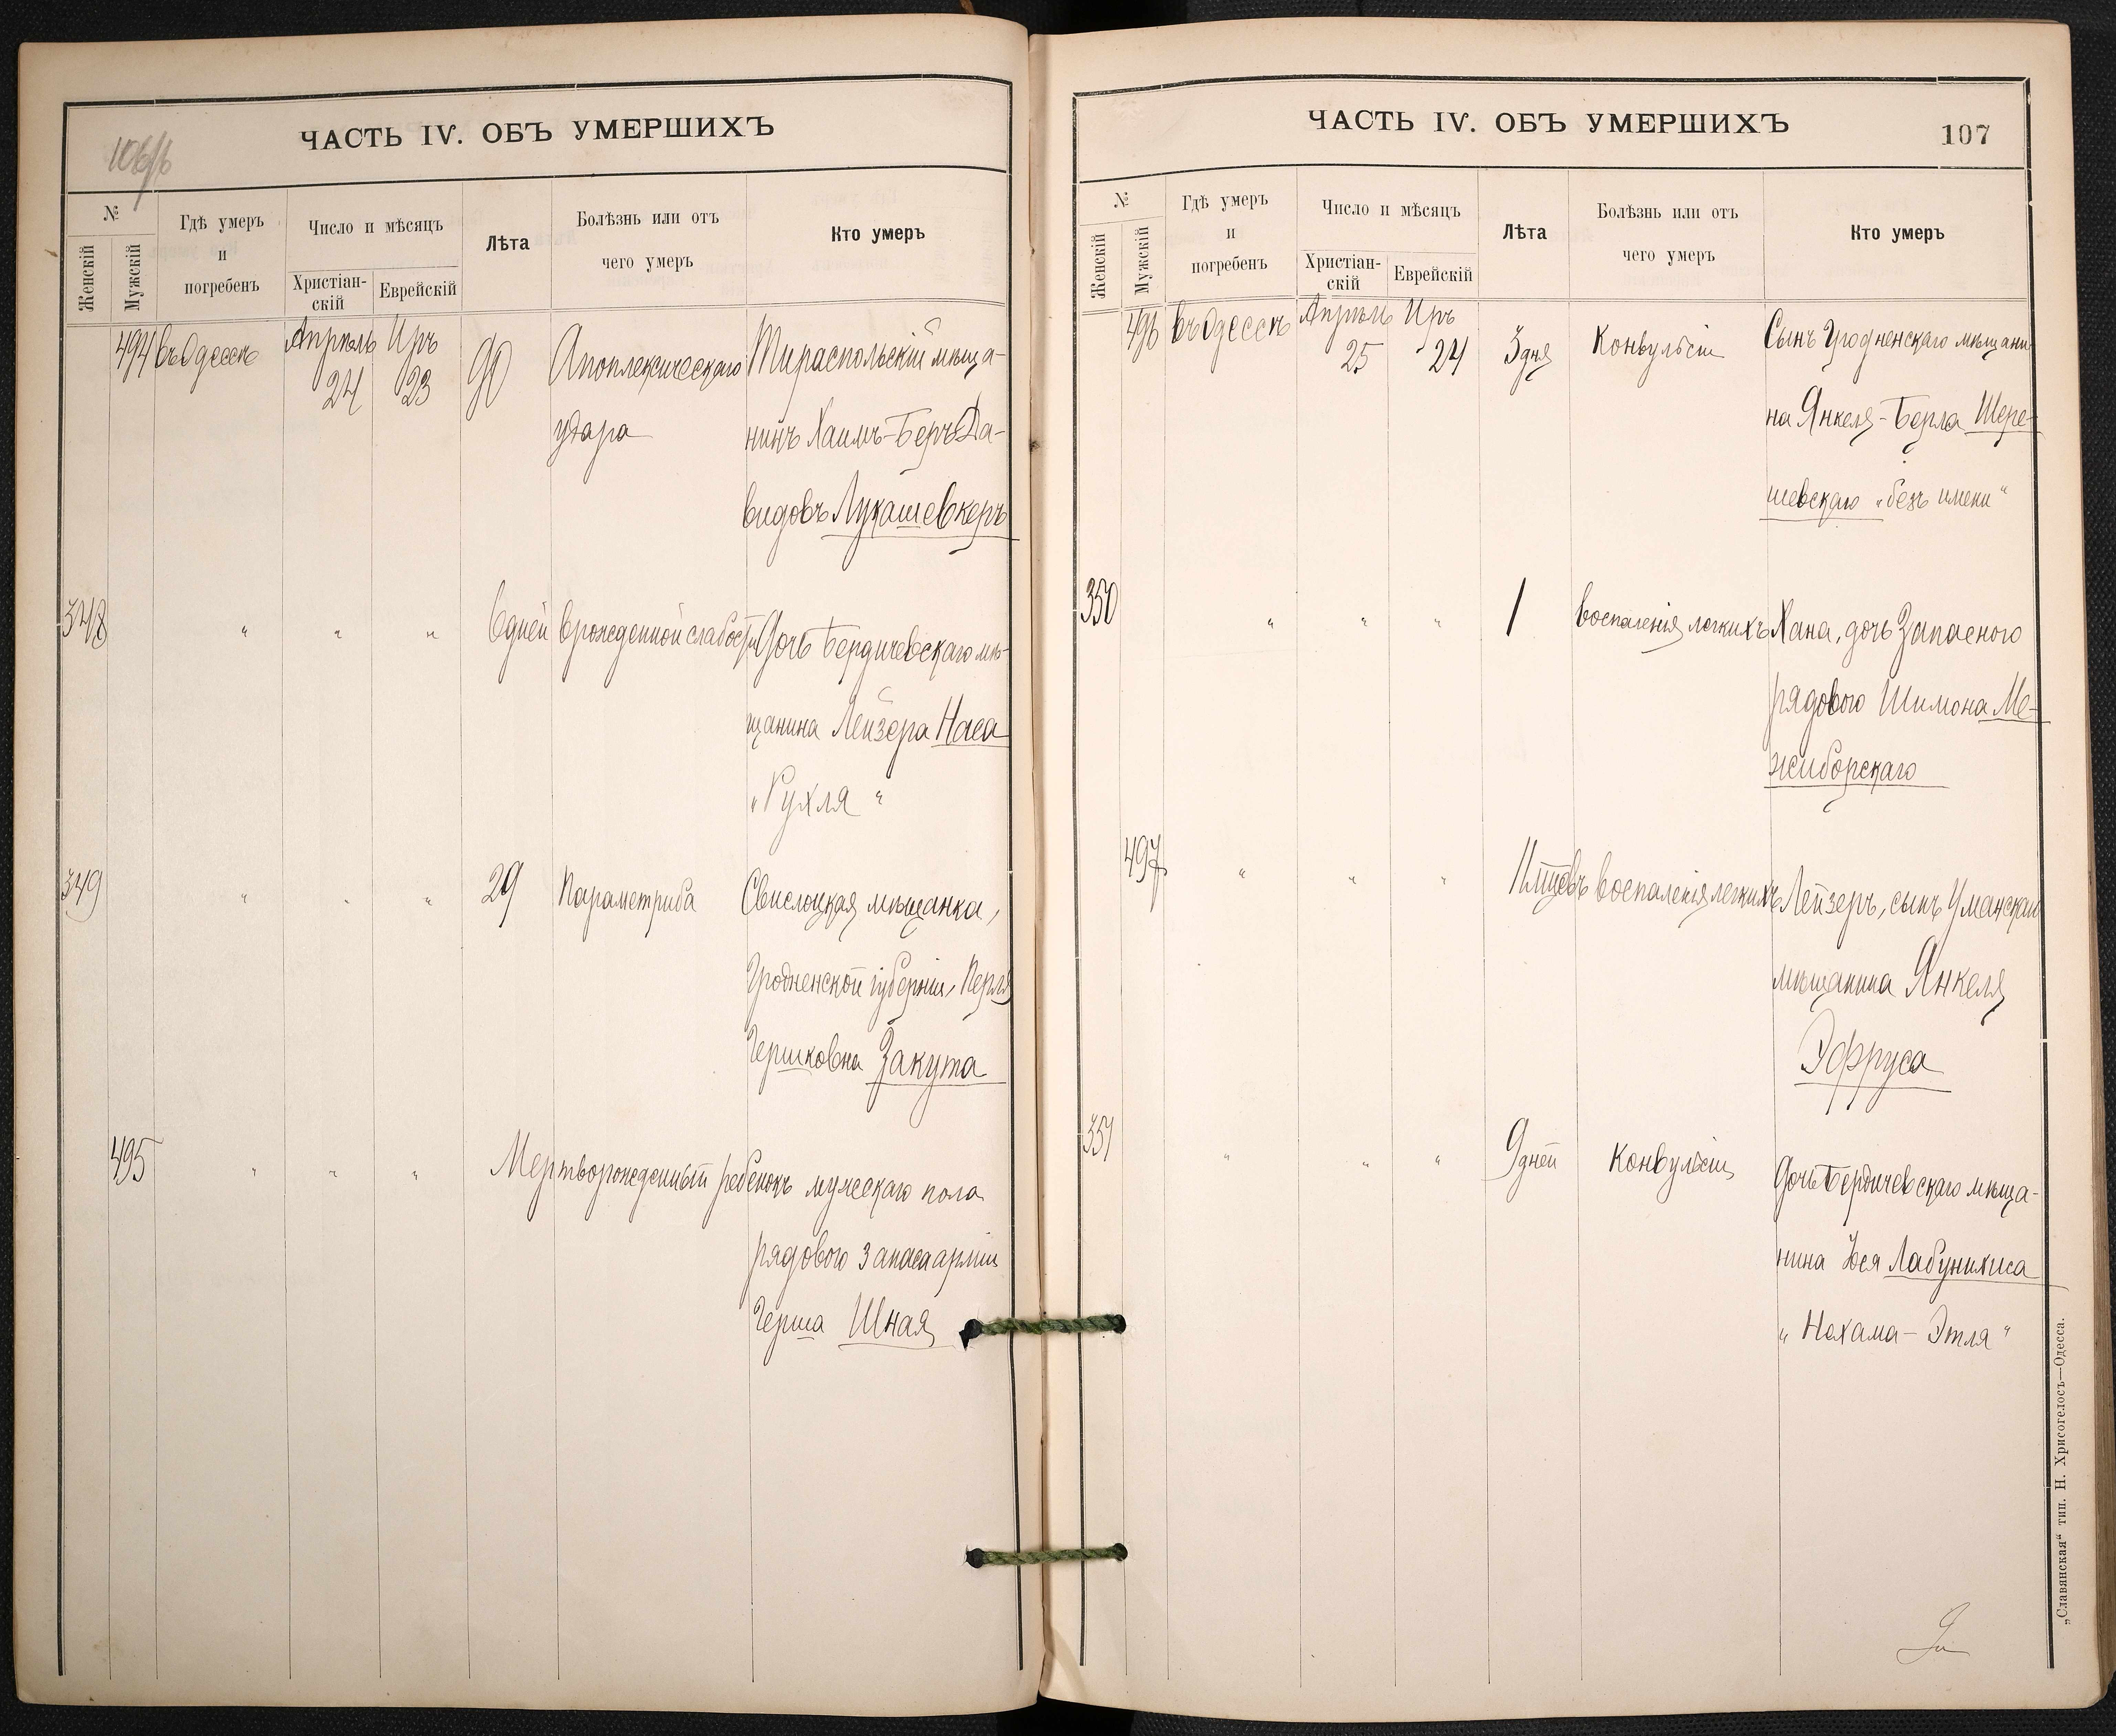 106/б
ЧАСТЬ IV. ОБЪ УМЕРШИХЪ
№
Женскій
Мужскій
Гдѣ умеръ
и
погребенъ
Число и мѣсяцъ
Христіан-
скій
Еврейскій
Лѣта
Болѣзнь или отъ
чего умеръ
Кто умеръ
494 въ Одессѣ Апрѣль Иръ 90 Апоплексическаго Тираспольскій мѣща-
24 23 удара нинъ Хаимъ-Беръ Да-
видовъ Лукашевкеръ
348 " " " 6 дней врожденной слабости Дочь Бердичевскаго мѣ-
щанина Лейзера Наса
"Рухля"
349 " " " 29 Параметрита Свислоцкая мѣщанка,
Гродненской губерніи, Перля
Гершковна Закута
495 " " " Мертворожденный ребенокъ мужескаго пола
рядового запаса арміи
Герша Шная
ЧАСТЬ IV. ОБЪ УМЕРШИХЪ
107
№
Женскій
Мужскій
Гдѣ умеръ
и
погребенъ
Число и мѣсяцъ
Христіан-
скій
Еврейскій
Лѣта
Болѣзнь или отъ
чего умеръ
Кто умеръ
496 въ Одессѣ Апрѣль Иръ 3 дня Конвульсіи Сынъ Гродненскаго мѣщани-
25 24 на Янкеля-Берла Шере-
шевскаго "безъ имени"
350 " " " 1 воспаленія легкихъ Хана, дочь Запасного
рядового Шимона Ме-
жиборскаго
497 " " " 11 мѣсцевъ воспаленія легкихъ Лейзеръ, сынъ Уманскаго
мѣщанина Янкеля
Эфруса
351 " " " 9 дней Конвульсіи Дочь Бердичевскаго мѣща-
нина Іося Лабунихиса
"Нехама-Этля"
„Славянская“ тип. Н. Хрисогелосъ—Одесса.